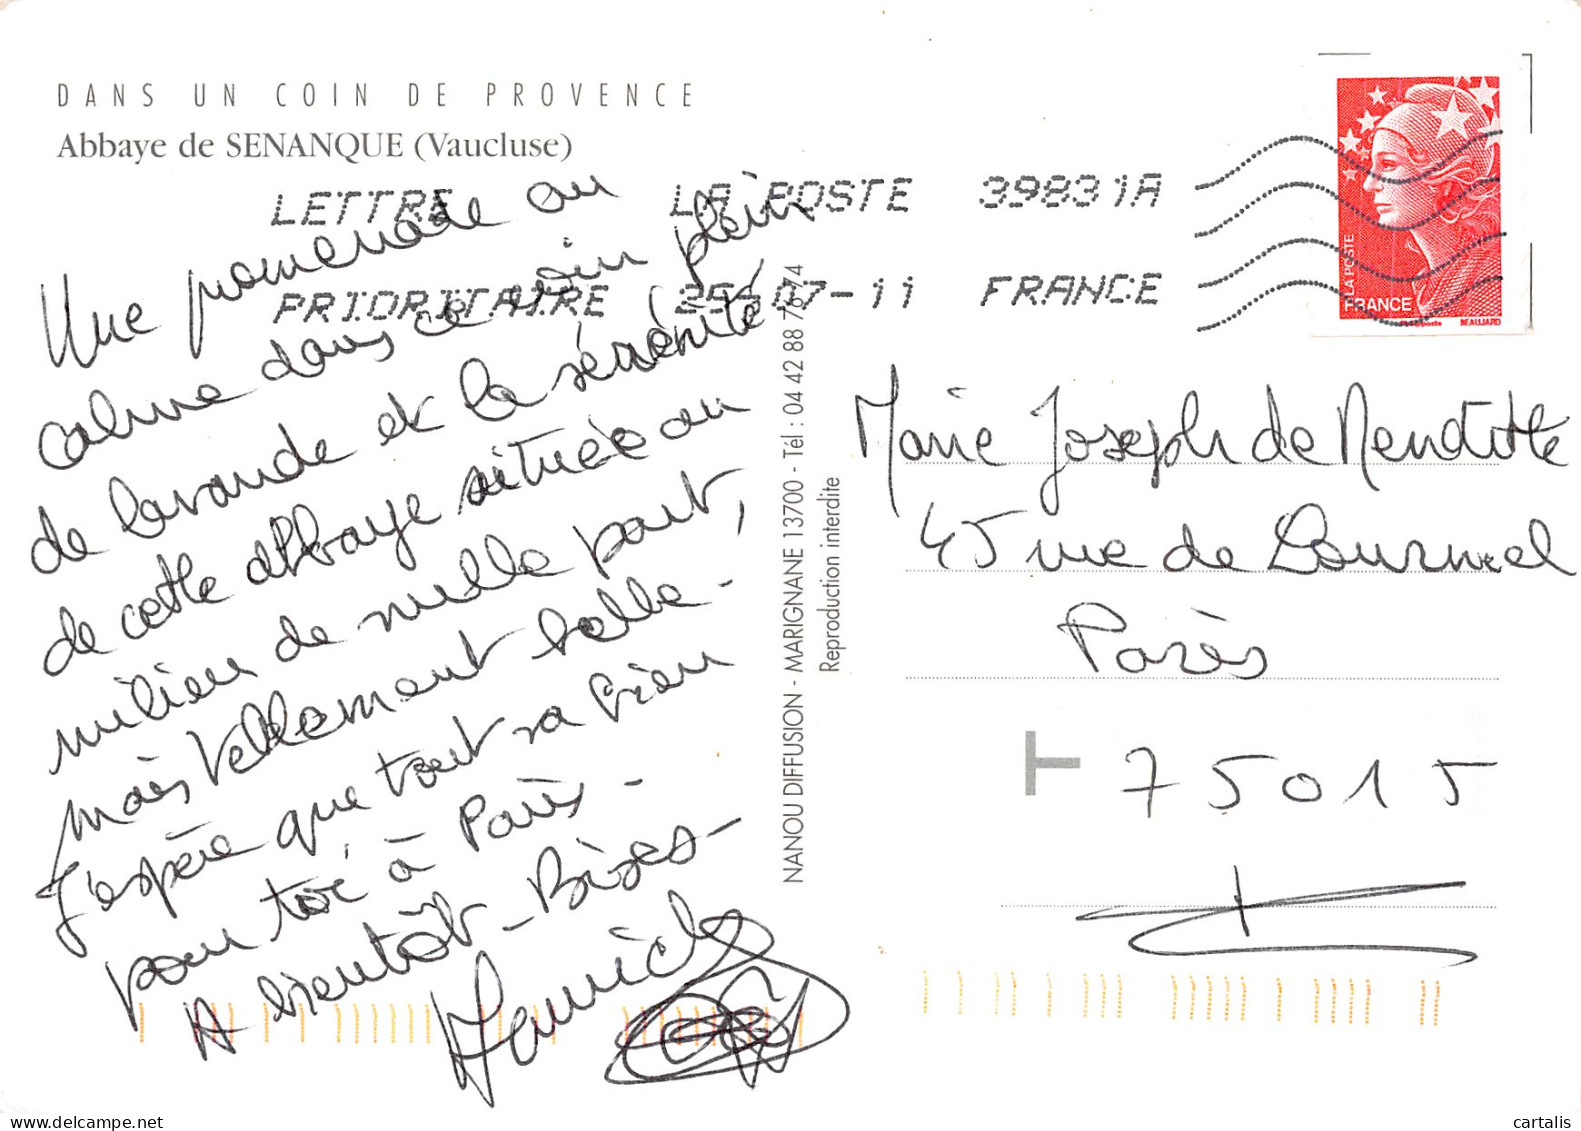 DANS UN COIN DE PROVENCE
Abbaye de SENANQUE (Vaucluse)
LETTRE LA POSTE 39831A
PRIORITAIRE 25-07-11 FRANCE
LA POSTE
FRANCE
BEAUJARD
Une promenade au
calme dans ce coin plein
de lavande et la sérénité
de cette abbaye située au
milieu de nulle part,
mais tellement belle -
J'espère que tout va bien
pour toi à Paris -
A bientôt - Bises -
NANOU DIFFUSION - MARIGNANE 13700 - Tél : 04 42 88 78 74
Reproduction interdite
Marie Joseph de Menditte
45 rue de Lourmel
Paris
T 75015
cartalis
delcampe.net